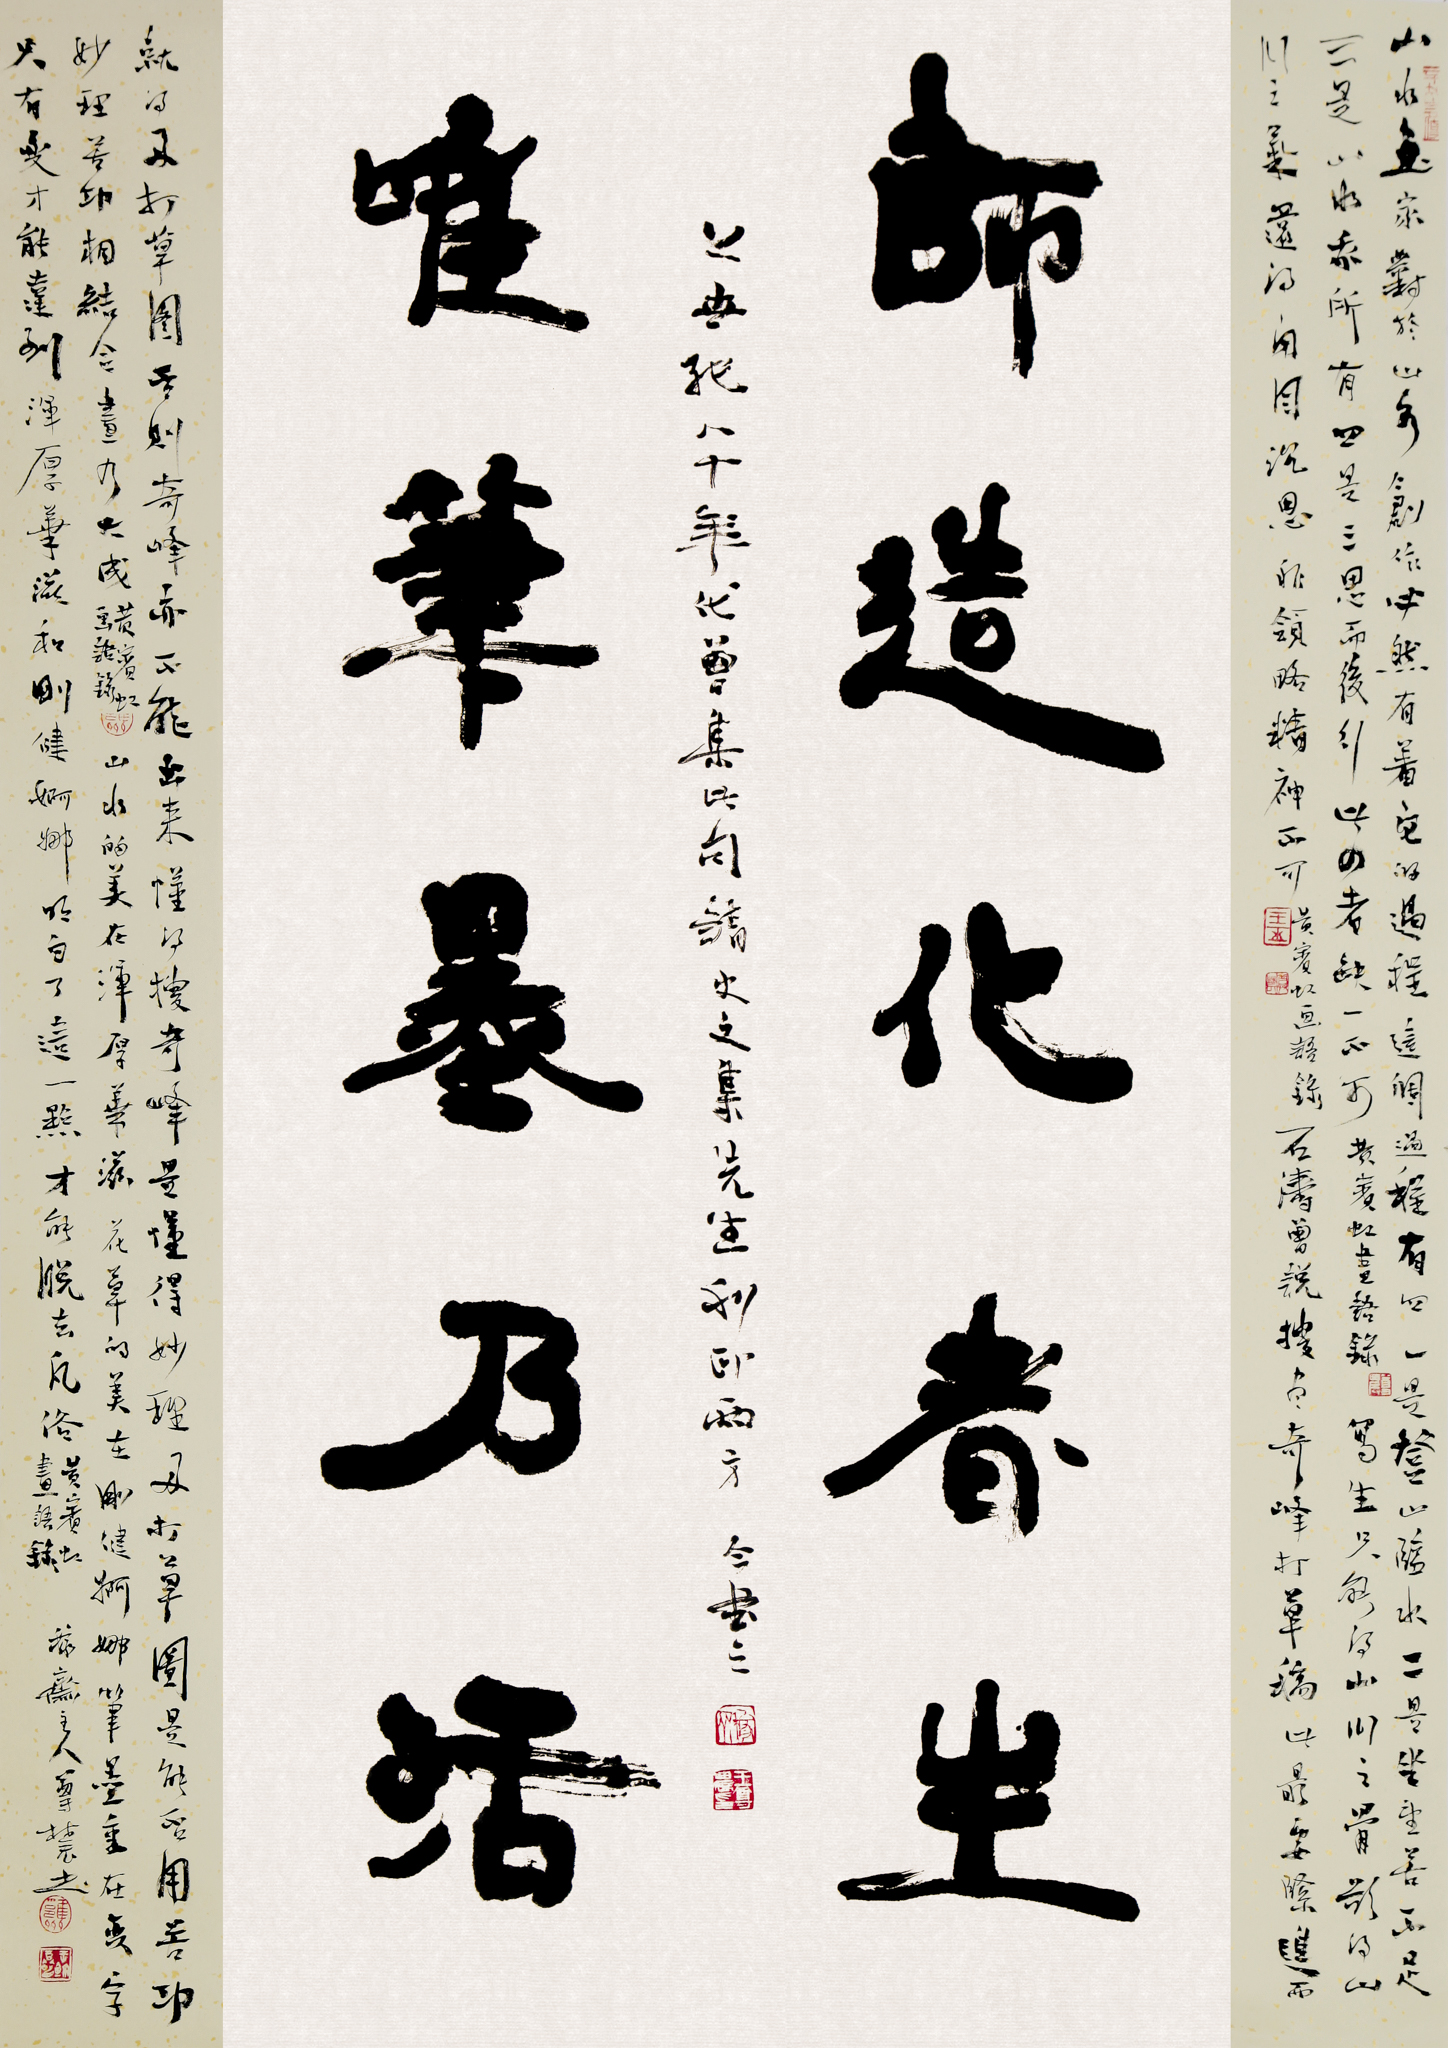 山水画家對於山水創作必然有着它的過程這個過程有四一是登山臨水二是坐望苦不足
三是山水我所有四是三思而後行此四者缺一不可黄賓虹畫語錄寫生只能得山川之骨欲得山
川之氣還得用图沉思非領略精神不可黄賓虹画語錄石濤曾說搜尽奇峰打草稿此最要緊進而
師造化者生
公世紀八十年代曾集此句請史文集先生利印兩方 今書之
唯筆墨乃活
就得多打草图否則奇峰亦不能出来懂得搜奇峰是懂得妙理多打草圖是能否用苦功
妙理苦功相結合畫乃大成黄賓虹画語錄山水的美在渾厚華滋花草的美在剛健婀娜筆墨重在变字
只有变才能達到渾厚華滋和剛健婀娜明白了這一點才能脱去凡俗黄賓虹畫語錄
齋主人尊農書